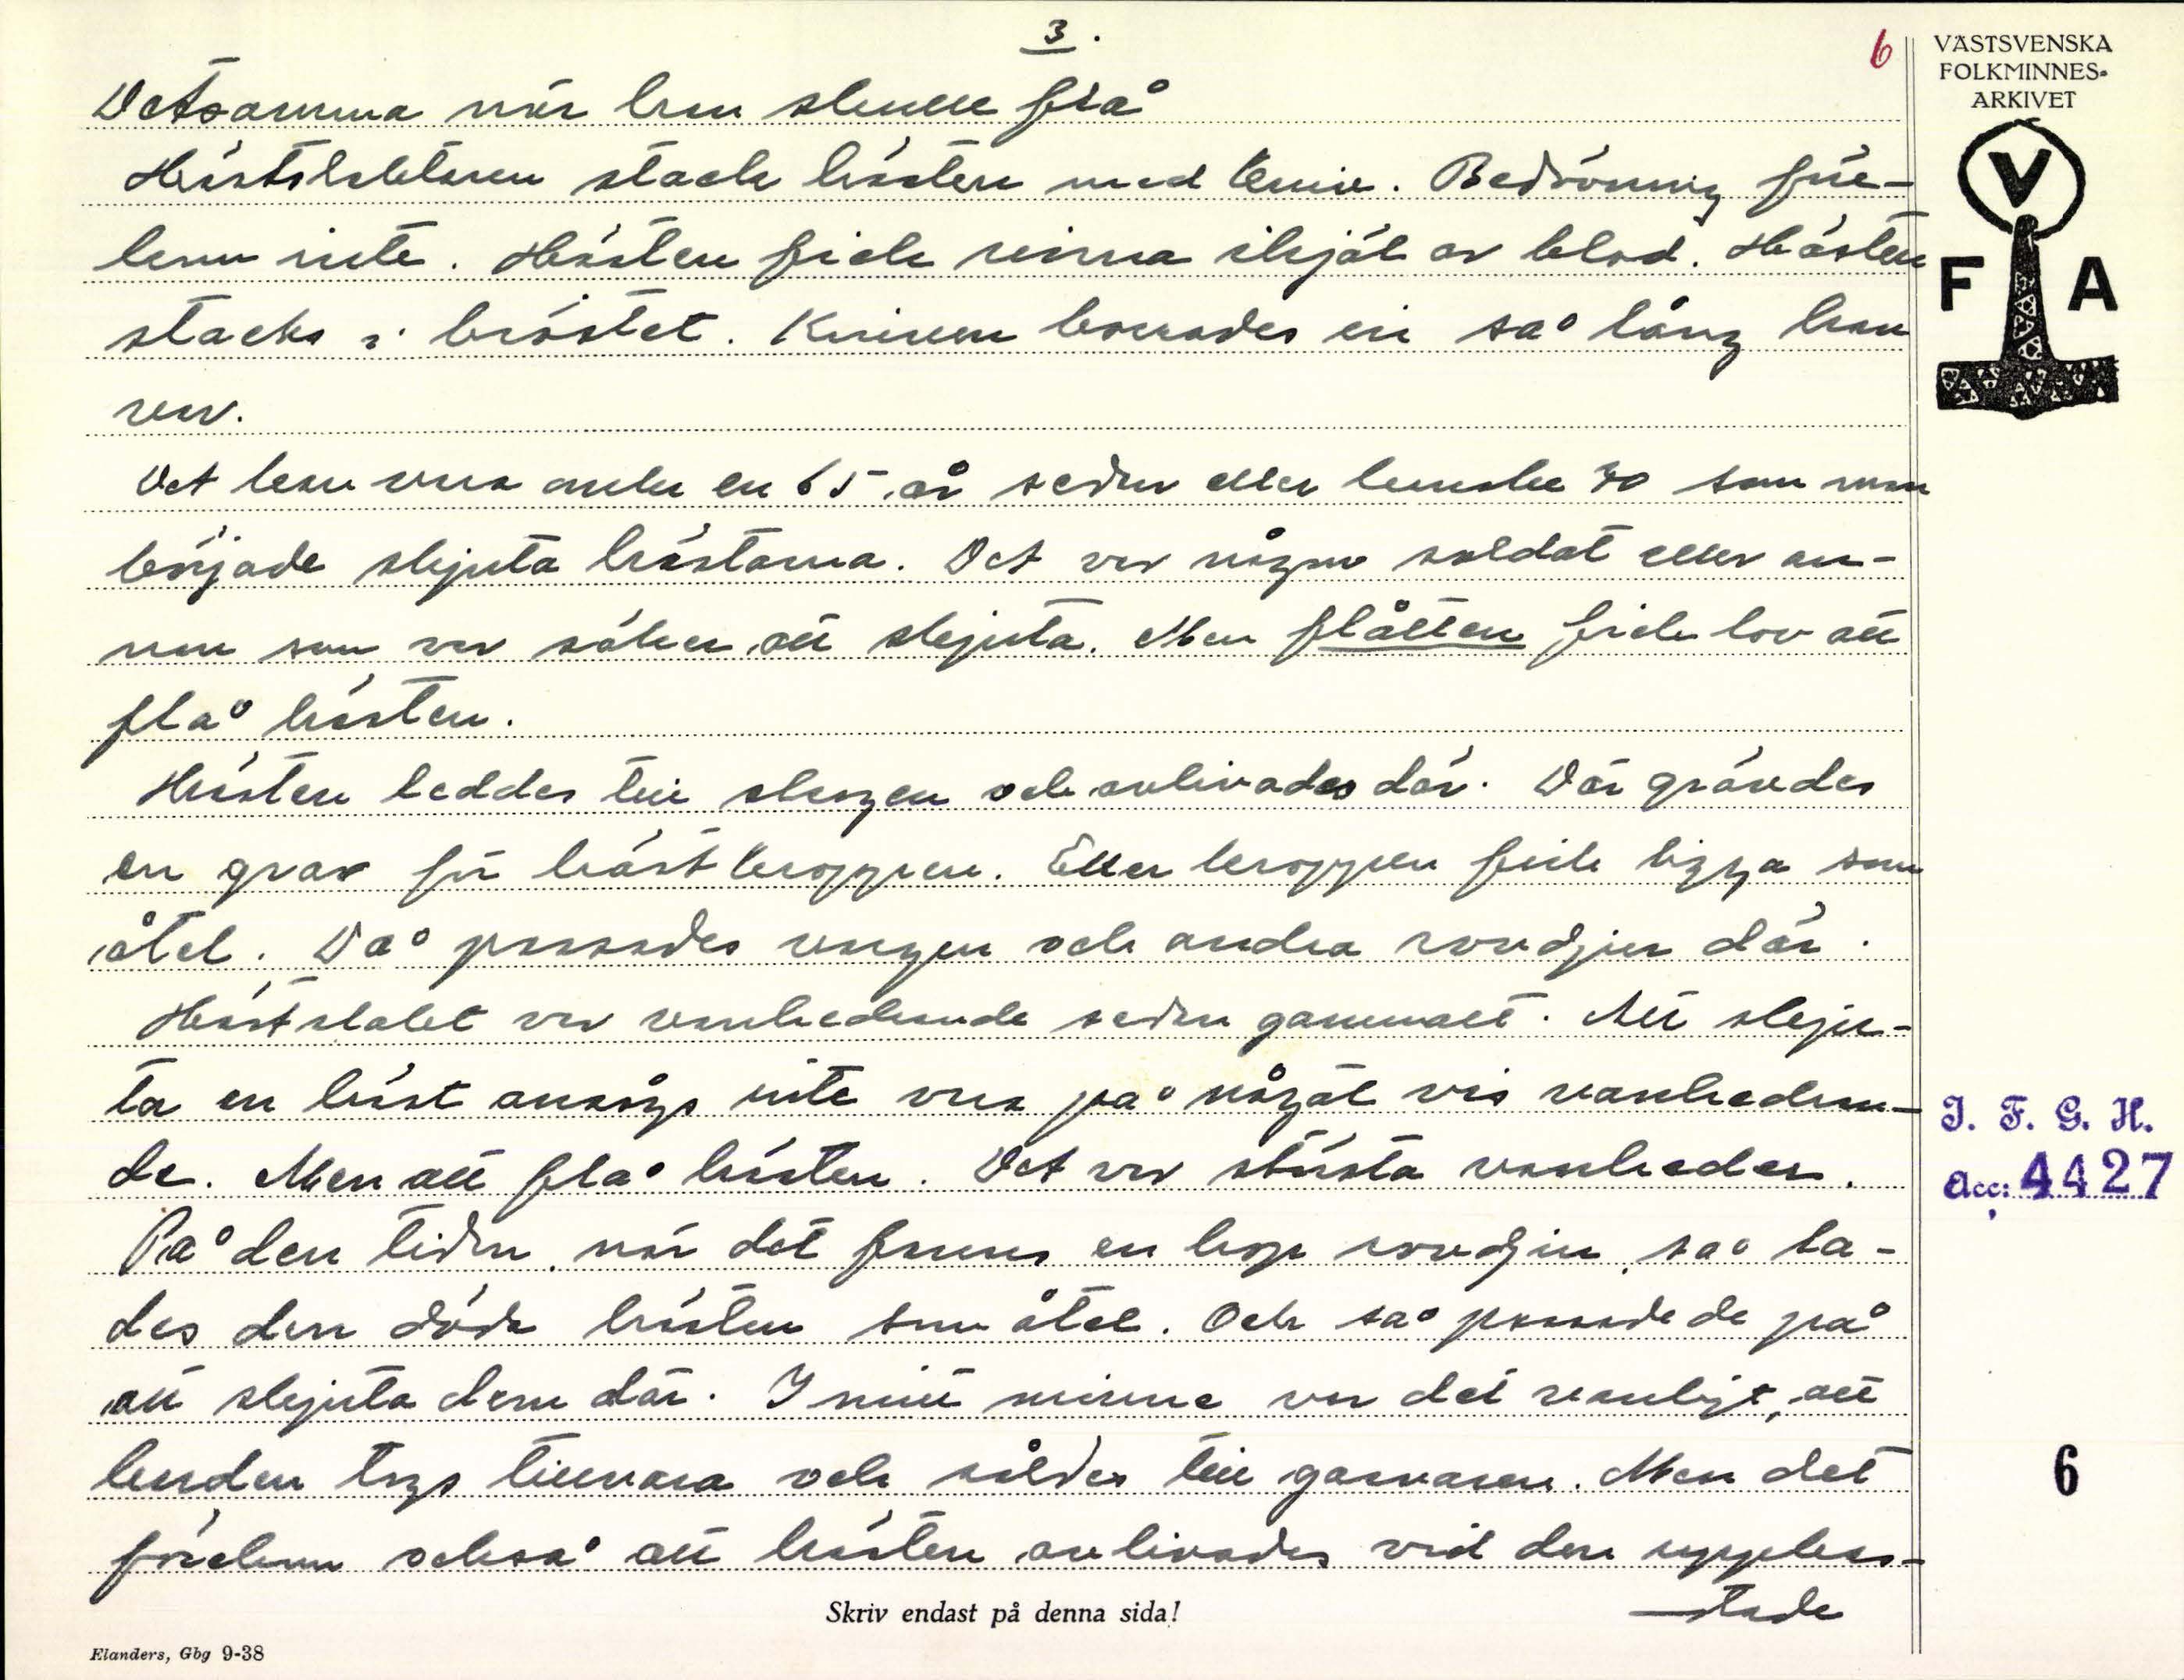 3.
6
VÄSTSVENSKA
FOLKMINNES-
ARKIVET
V
F A
Detsamma när han skulle flå
Hästslaktaren stack hästen med kniv. Bedövning före-
kom inte. Hästen fick rinna ihjäl av blod. Hästen
stacks i bröstet. Kniven borrades in så lång han
var.
Det kan vara omkr en 65 år sedan eller kanske 70 som man
började skjuta hästarna. Det var någon soldat eller an-
nan som var säker att skjuta. Men flåtten fick lov att
flå hästen.
Hästen leddes till skogen och avlivades där. Där grävdes
en grav för hästkroppen. Eller kroppen fick ligga som
åtel. Då passades vargen och andra rovdjur där.
Hästslakt var vanhedrande sedan gammalt. Att skju-
ta en häst ansågs inte vara på något vis vanhedran-
de. Men att flå hästen. Det var största vanheder.
På den tiden när det fanns en hop rovdjur, så la-
des den döda hästen som åtel. Och så passade de på
att skjuta dem där. I mitt minne var det vanligt, att
huden togs tillvara och såldes till garvaren. Men det
förekom också att hästen avlivades vid den uppkas-
tade
I. F. G. H.
Acc: 4427
6
Skriv endast på denna sida!
Elanders, Gbg 9-38